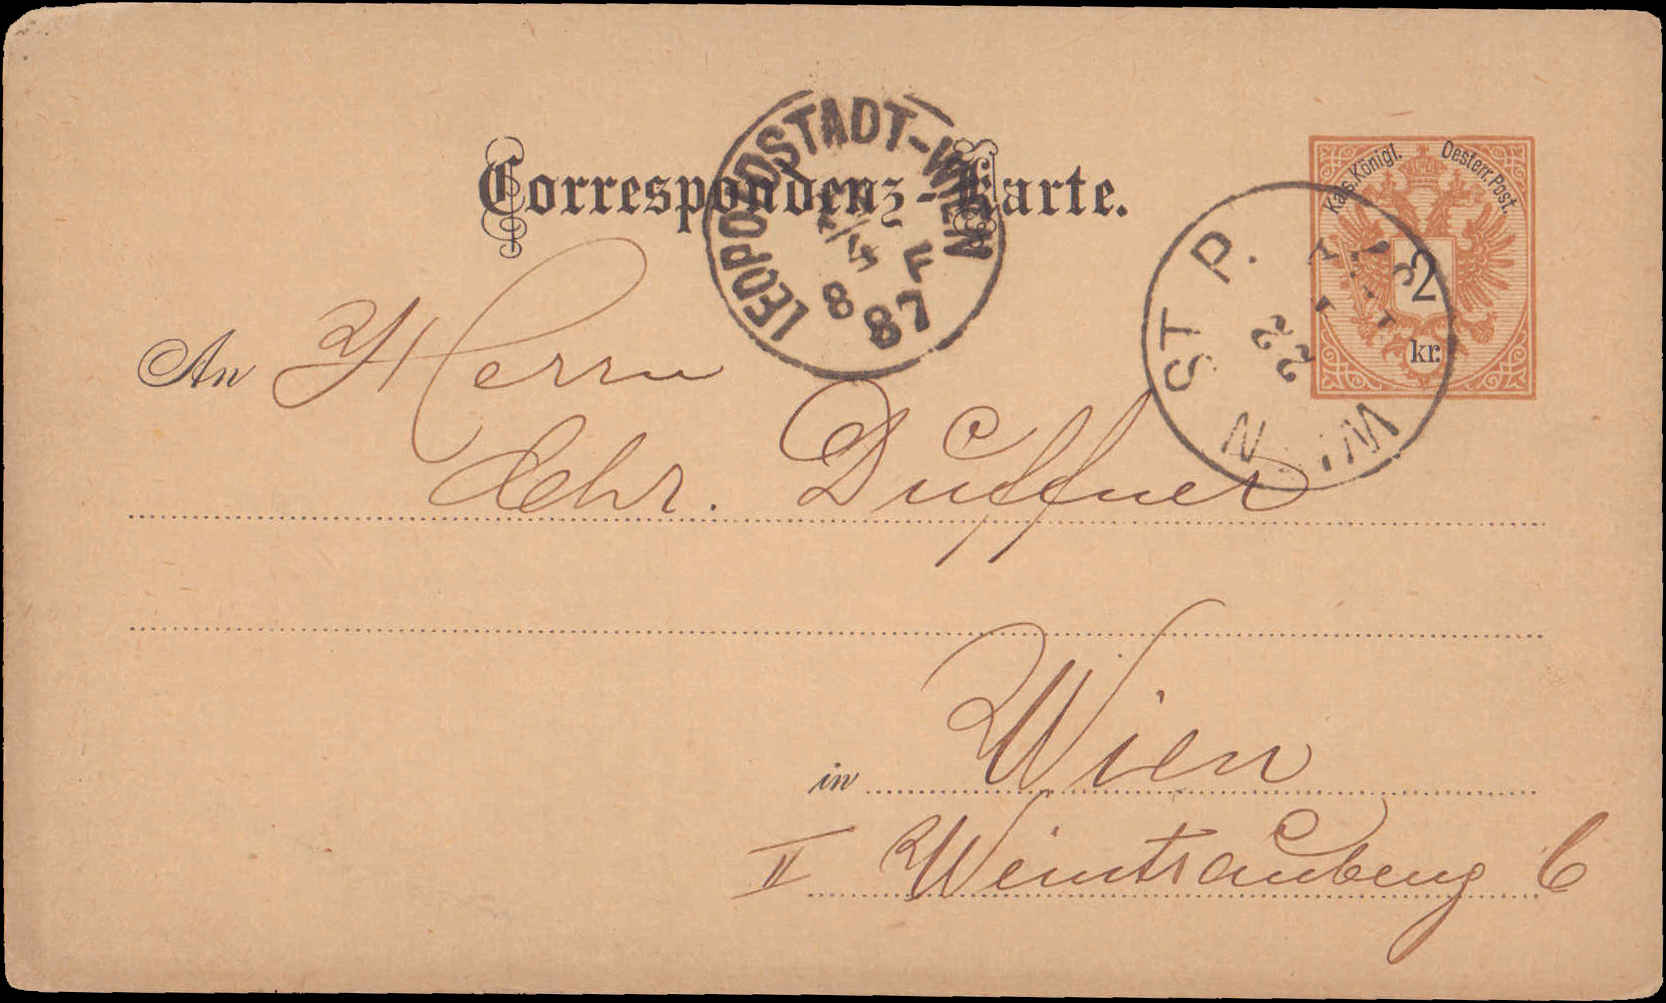 LEOPOLDSTADT-WIEN
4/4
8 F
87
Correspondenz-Karte.
Kais. Königl. Oesterr. Post.
2
kr.
WIEN ST. P.
22
An Herrn
Chr. Duffner
in Wien
II Weintraubeng 6